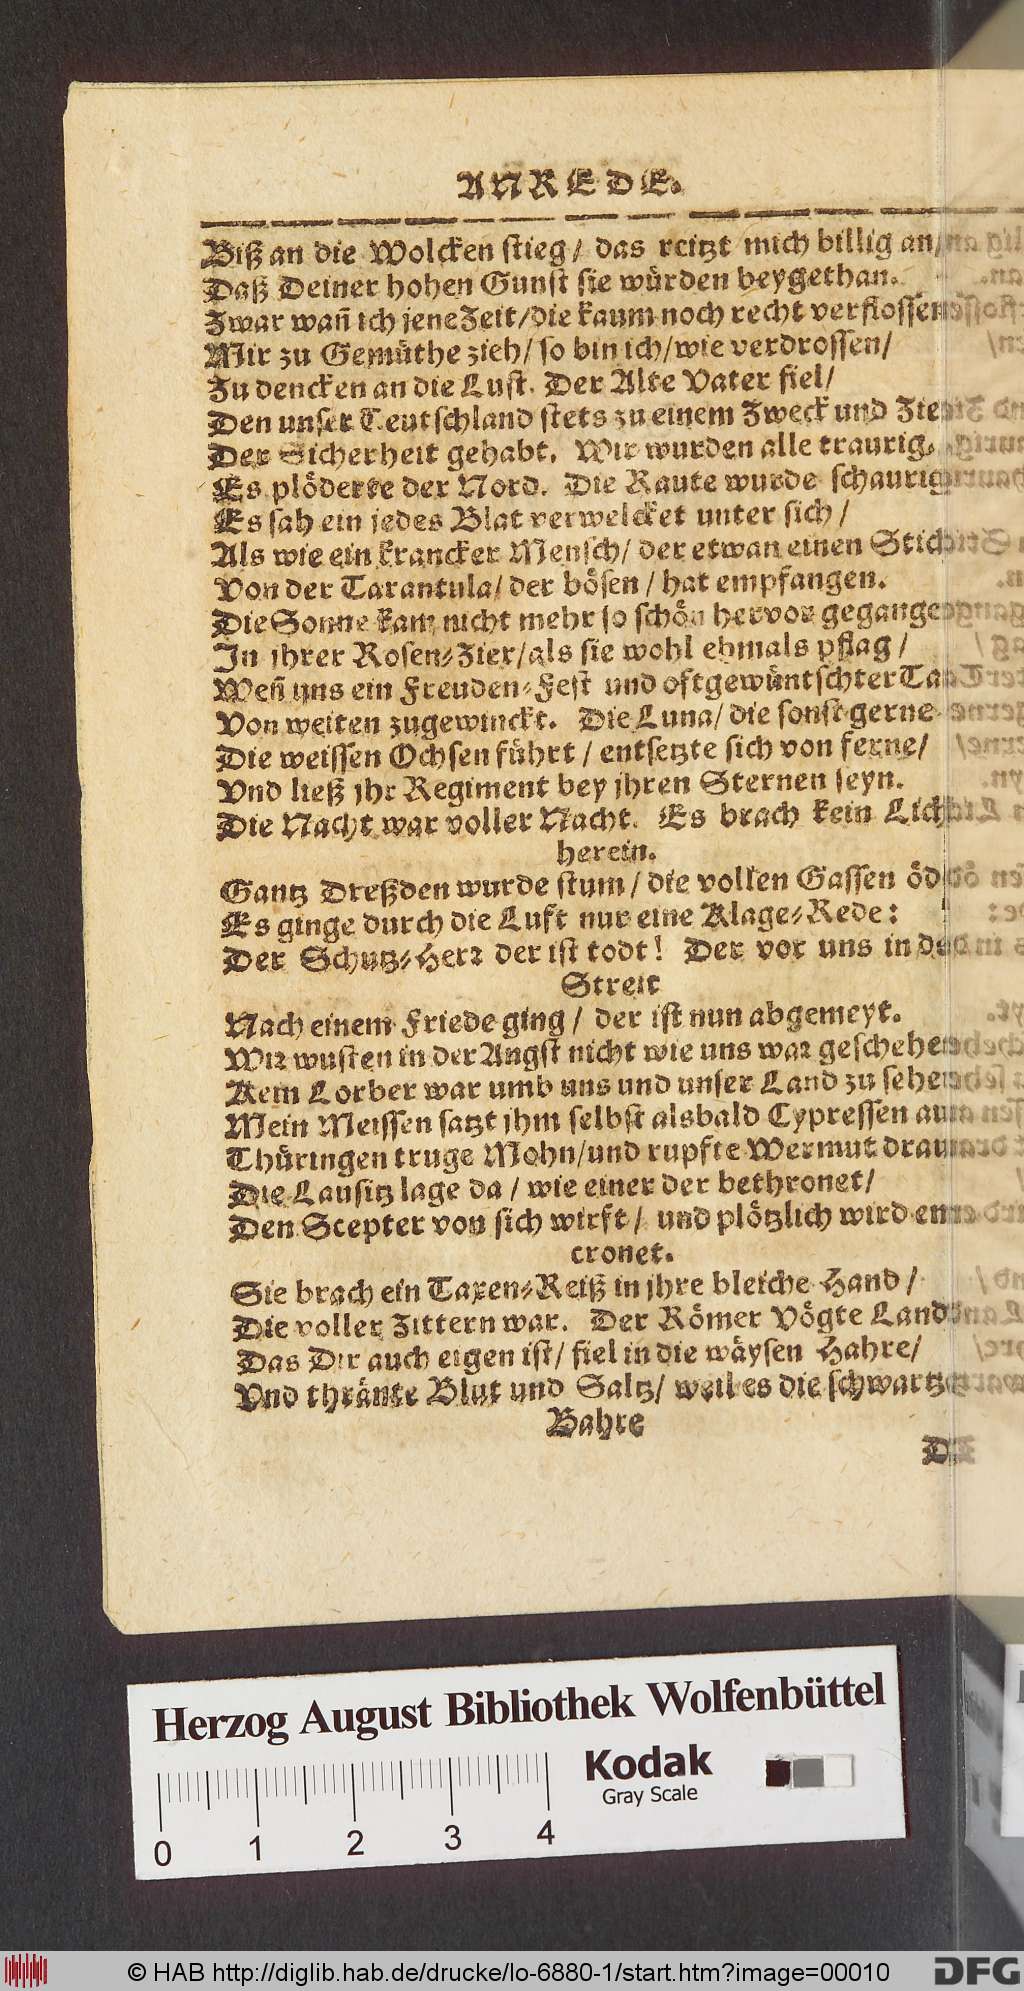 ANREDE.
Biß an die Wolcken stieg / das reitzt mich billig an /
Daß Deiner hohen Gunst sie würden beygethan.
Zwar wañ ich jene Zeit / die kaum noch recht verflossen
Mir zu Gemüthe zieh / so bin ich / wie verdrossen /
Zu dencken an die Lust. Der Alte Vater fiel /
Den unser Teutschland stets zu einem Zweck und Ziel
Der Sicherheit gehabt. Wir wurden alle traurig.
Es plöderte der Nord. Die Raute wurde schaurig
Es sah ein jedes Blat verwelcket unter sich /
Als wie ein krancker Mensch / der etwan einen Stich
Von der Tarantula / der bösen / hat empfangen.
Die Sonne kam nicht mehr so schön hervor gegangen
In jhrer Rosen-Zier / als sie wohl ehmals pflag /
Weñ uns ein Freuden-Fest und oftgewüntschter Tag
Von weiten zugewinckt. Die Luna / die sonst gerne
Die weissen Ochsen führt / entsetzte sich von ferne /
Vnd ließ jhr Regiment bey jhren Sternen seyn.
Die Nacht war voller Nacht. Es brach kein Licht
herein.
Gantz Dreßden wurde stum / die vollen Gassen öde
Es ginge durch die Luft nur eine Klage-Rede:
Der Schutz-Herr der ist todt! Der vor uns in den
Streit
Nach einem Friede ging / der ist nun abgemeyt.
Wir wusten in der Angst nicht wie uns war geschehen
Kein Lorber war umb uns und unser Land zu sehen
Mein Meissen satzt jhm selbst alsbald Cypressen auf
Thüringen truge Mohn / und rupfte Wermut drauf
Die Lausitz lage da / wie einer der bethronet /
Den Scepter von sich wirft / und plötzlich wird ent
cronet.
Sie brach ein Taxen-Reiß in jhre bleiche Hand /
Die voller Zittern war. Der Römer Vögte Land
Das Dir auch eigen ist / fiel in die wäysen Hahre /
Vnd thränte Blut und Saltz / weil es die schwartze
Bahre
Herzog August Bibliothek Wolfenbüttel
Kodak
Gray Scale
0 1 2 3 4
© HAB http://diglib.hab.de/drucke/lo-6880-1/start.htm?image=00010
DFG